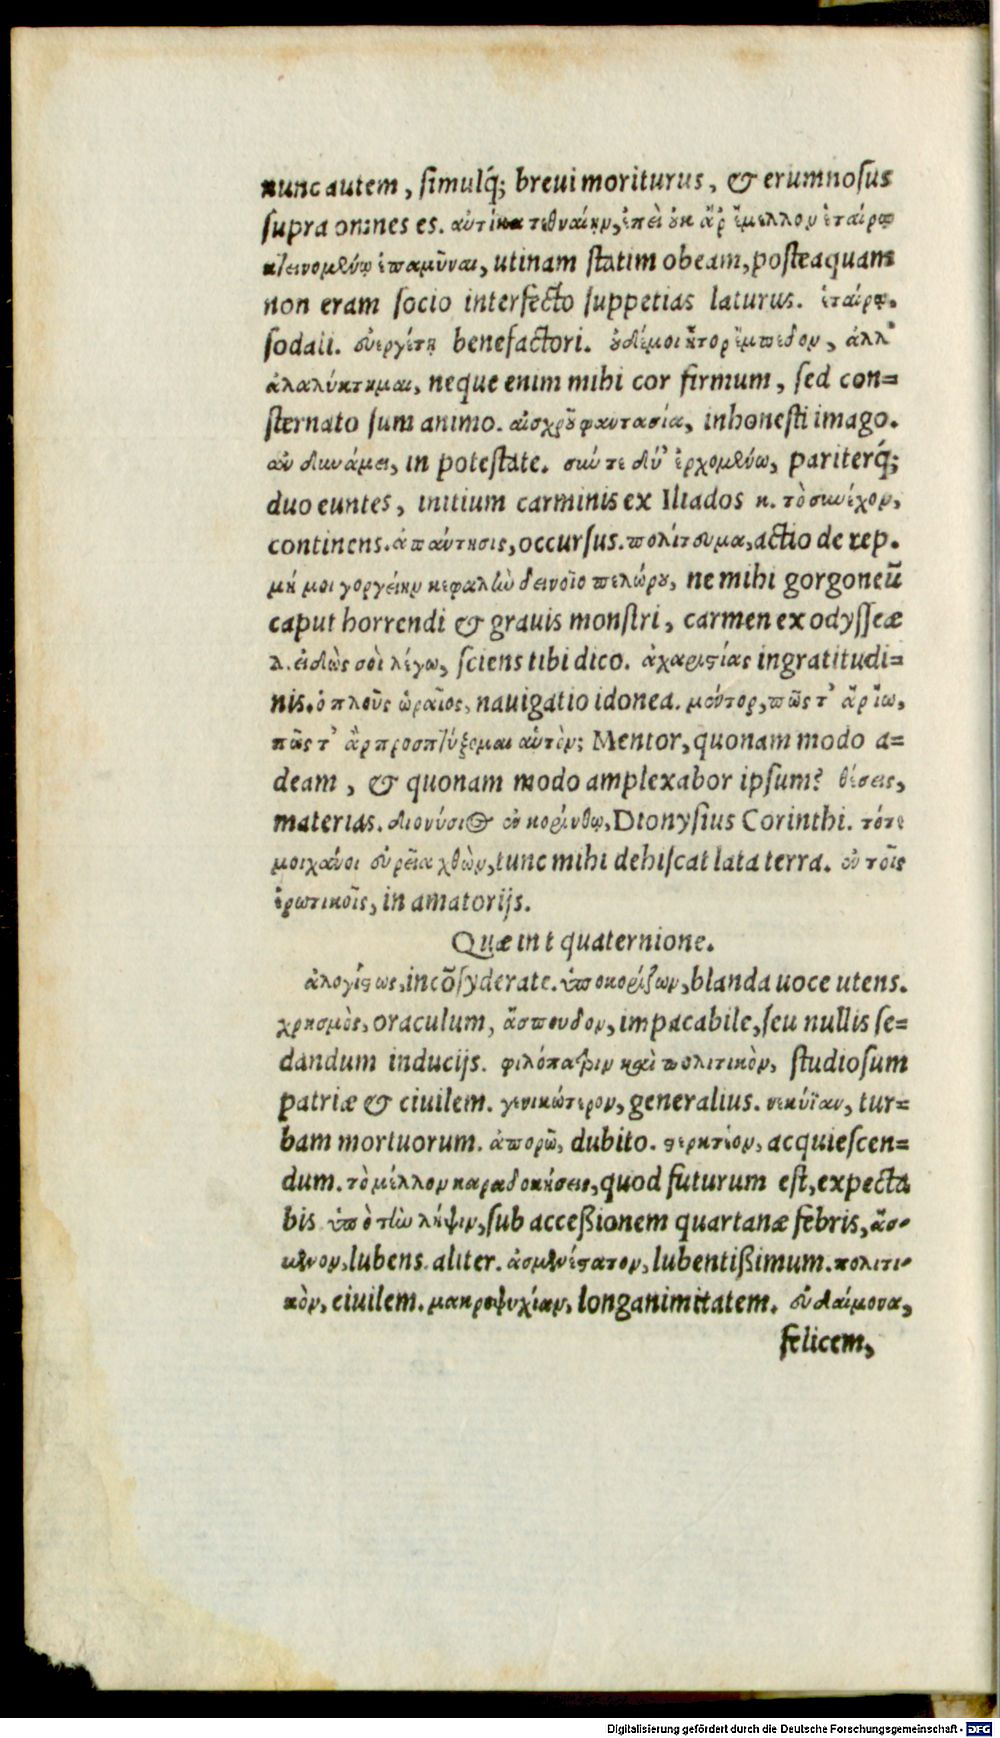 nunc autem, ſimulq́; breui moriturus, & erumnoſus
ſupra omnes es. αὐτίκα τεθναίην, ἐπεὶ οὐκ ἄρ ἔμελλον ἑταίρῳ
κτεινομένῳ ἐπαμῦναι, utinam ſtatim obeam, poſteaquam
non eram ſocio interfecto ſuppetias laturus. ἑταίρῳ.
ſodali. εὐεργέτῃ benefactori. οὐδέ μοι ἦτορ ἔμπεδον, ἀλλ'
ἀλαλύκτημαι, neque enim mihi cor firmum, ſed con=
ſternato ſum animo. αἰσχροῦ φαντασία, inhoneſti imago.
ἐν δυνάμει, in poteſtate. σύν τε δύ' ἐρχομένω, pariterq́;
duo euntes, initium carminis ex Iliados κ. τὸ συνέχον,
continens. ἀπάντησις, occurſus. πολίτευμα, actio de rep.
μή μοι γοργείην κεφαλὴν δεινοῖο πελώρου, ne mihi gorgoneū
caput horrendi & grauis monſtri, carmen ex odyſſeæ
λ. εἰδώς σοὶ λέγω, ſciens tibi dico. ἀχαριστίας ingratitudi=
nis. ὁ πλοῦς ὡραῖος, nauigatio idonea. μέντορ, πῶς τ' ἄρ ἴω,
πῶς τ' ἂρ προσπτύξομαι αὐτόν; Mentor, quonam modo a=
deam, & quonam modo amplexabor ipſum? θέσεις,
materias. διονύσιος ἐν κορίνθῳ, Dionyſius Corinthi. τότε
μοι χάνοι εὐρεῖα χθὼν, tunc mihi dehiſcat lata terra. ἐν τοῖς
ἐρωτικοῖς, in amatorijs.
Quæ in t quaternione.
ἀλογίστως, incōſyderate. ὑποκορίζων, blanda uoce utens.
χρησμὸς, oraculum, ἄσπονδον, impacabile, ſeu nullis ſe=
dandum inducijs. φιλόπατριν καὶ πολιτικὸν, ſtudioſum
patriæ & ciuilem. γενικώτερον, generalius. νεκύϊαν, tur=
bam mortuorum. ἀπορῶ, dubito. στερκτέον, acquieſcen=
dum. τὸ μέλλον καραδοκήσεις, quod futurum eſt, expecta
bis. ὑπὸ τὴν λῆψιν, ſub acceßionem quartanæ febris, ἄσ=
μενον, lubens. aliter. ἀσμενέστατον, lubentißimum. πολιτι=
κὸν, ciuilem. μακροψυχίαν, longanimitatem. εὐδαίμονα,
felicem,
Digitalisierung gefördert durch die Deutsche Forschungsgemeinschaft - DFG